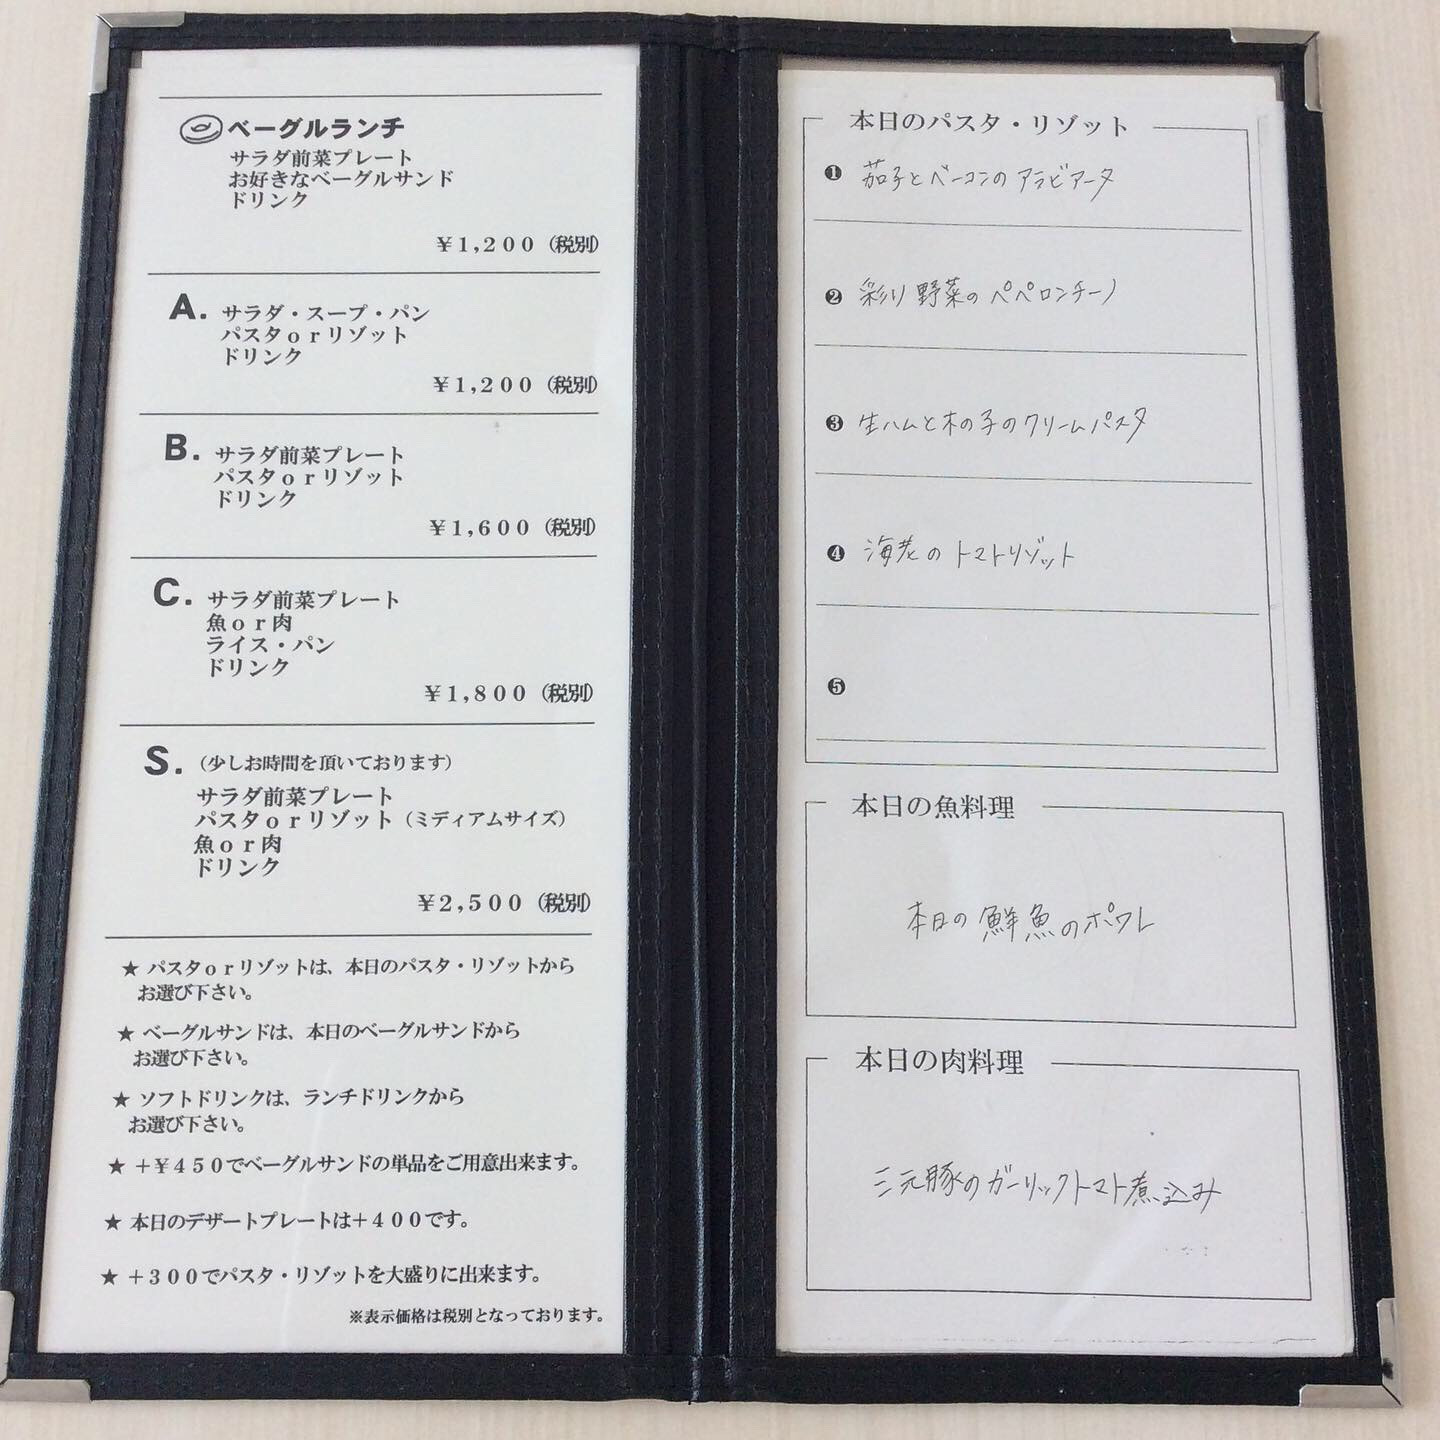 ベーグルランチ
サラダ前菜プレート
お好きなベーグルサンド
ドリンク
¥1,200（税別）
A.
サラダ・スープ・パン
パスタorリゾット
ドリンク
¥1,200（税別）
B.
サラダ前菜プレート
パスタorリゾット
ドリンク
¥1,600（税別）
C.
サラダ前菜プレート
魚or肉
ライス・パン
ドリンク
¥1,800（税別）
S.（少しお時間を頂いております）
サラダ前菜プレート
パスタorリゾット（ミディアムサイズ）
魚or肉
ドリンク
¥2,500（税別）
★ パスタorリゾットは、本日のパスタ・リゾットから
お選び下さい。
★ ベーグルサンドは、本日のベーグルサンドから
お選び下さい。
★ ソフトドリンクは、ランチドリンクから
お選び下さい。
★ +¥450でベーグルサンドの単品をご用意出来ます。
★ 本日のデザートプレートは+400です。
★ +300でパスタ・リゾットを大盛りに出来ます。
※表示価格は税別となっております。
本日のパスタ・リゾット
❶ 茄子とベーコンのアラビアータ
❷ 彩り野菜のペペロンチーノ
❸ 生ハムと木の子のクリームパスタ
❹ 海老のトマトリゾット
❺
本日の魚料理
本日の鮮魚のポワレ
本日の肉料理
三元豚のガーリックトマト煮込み